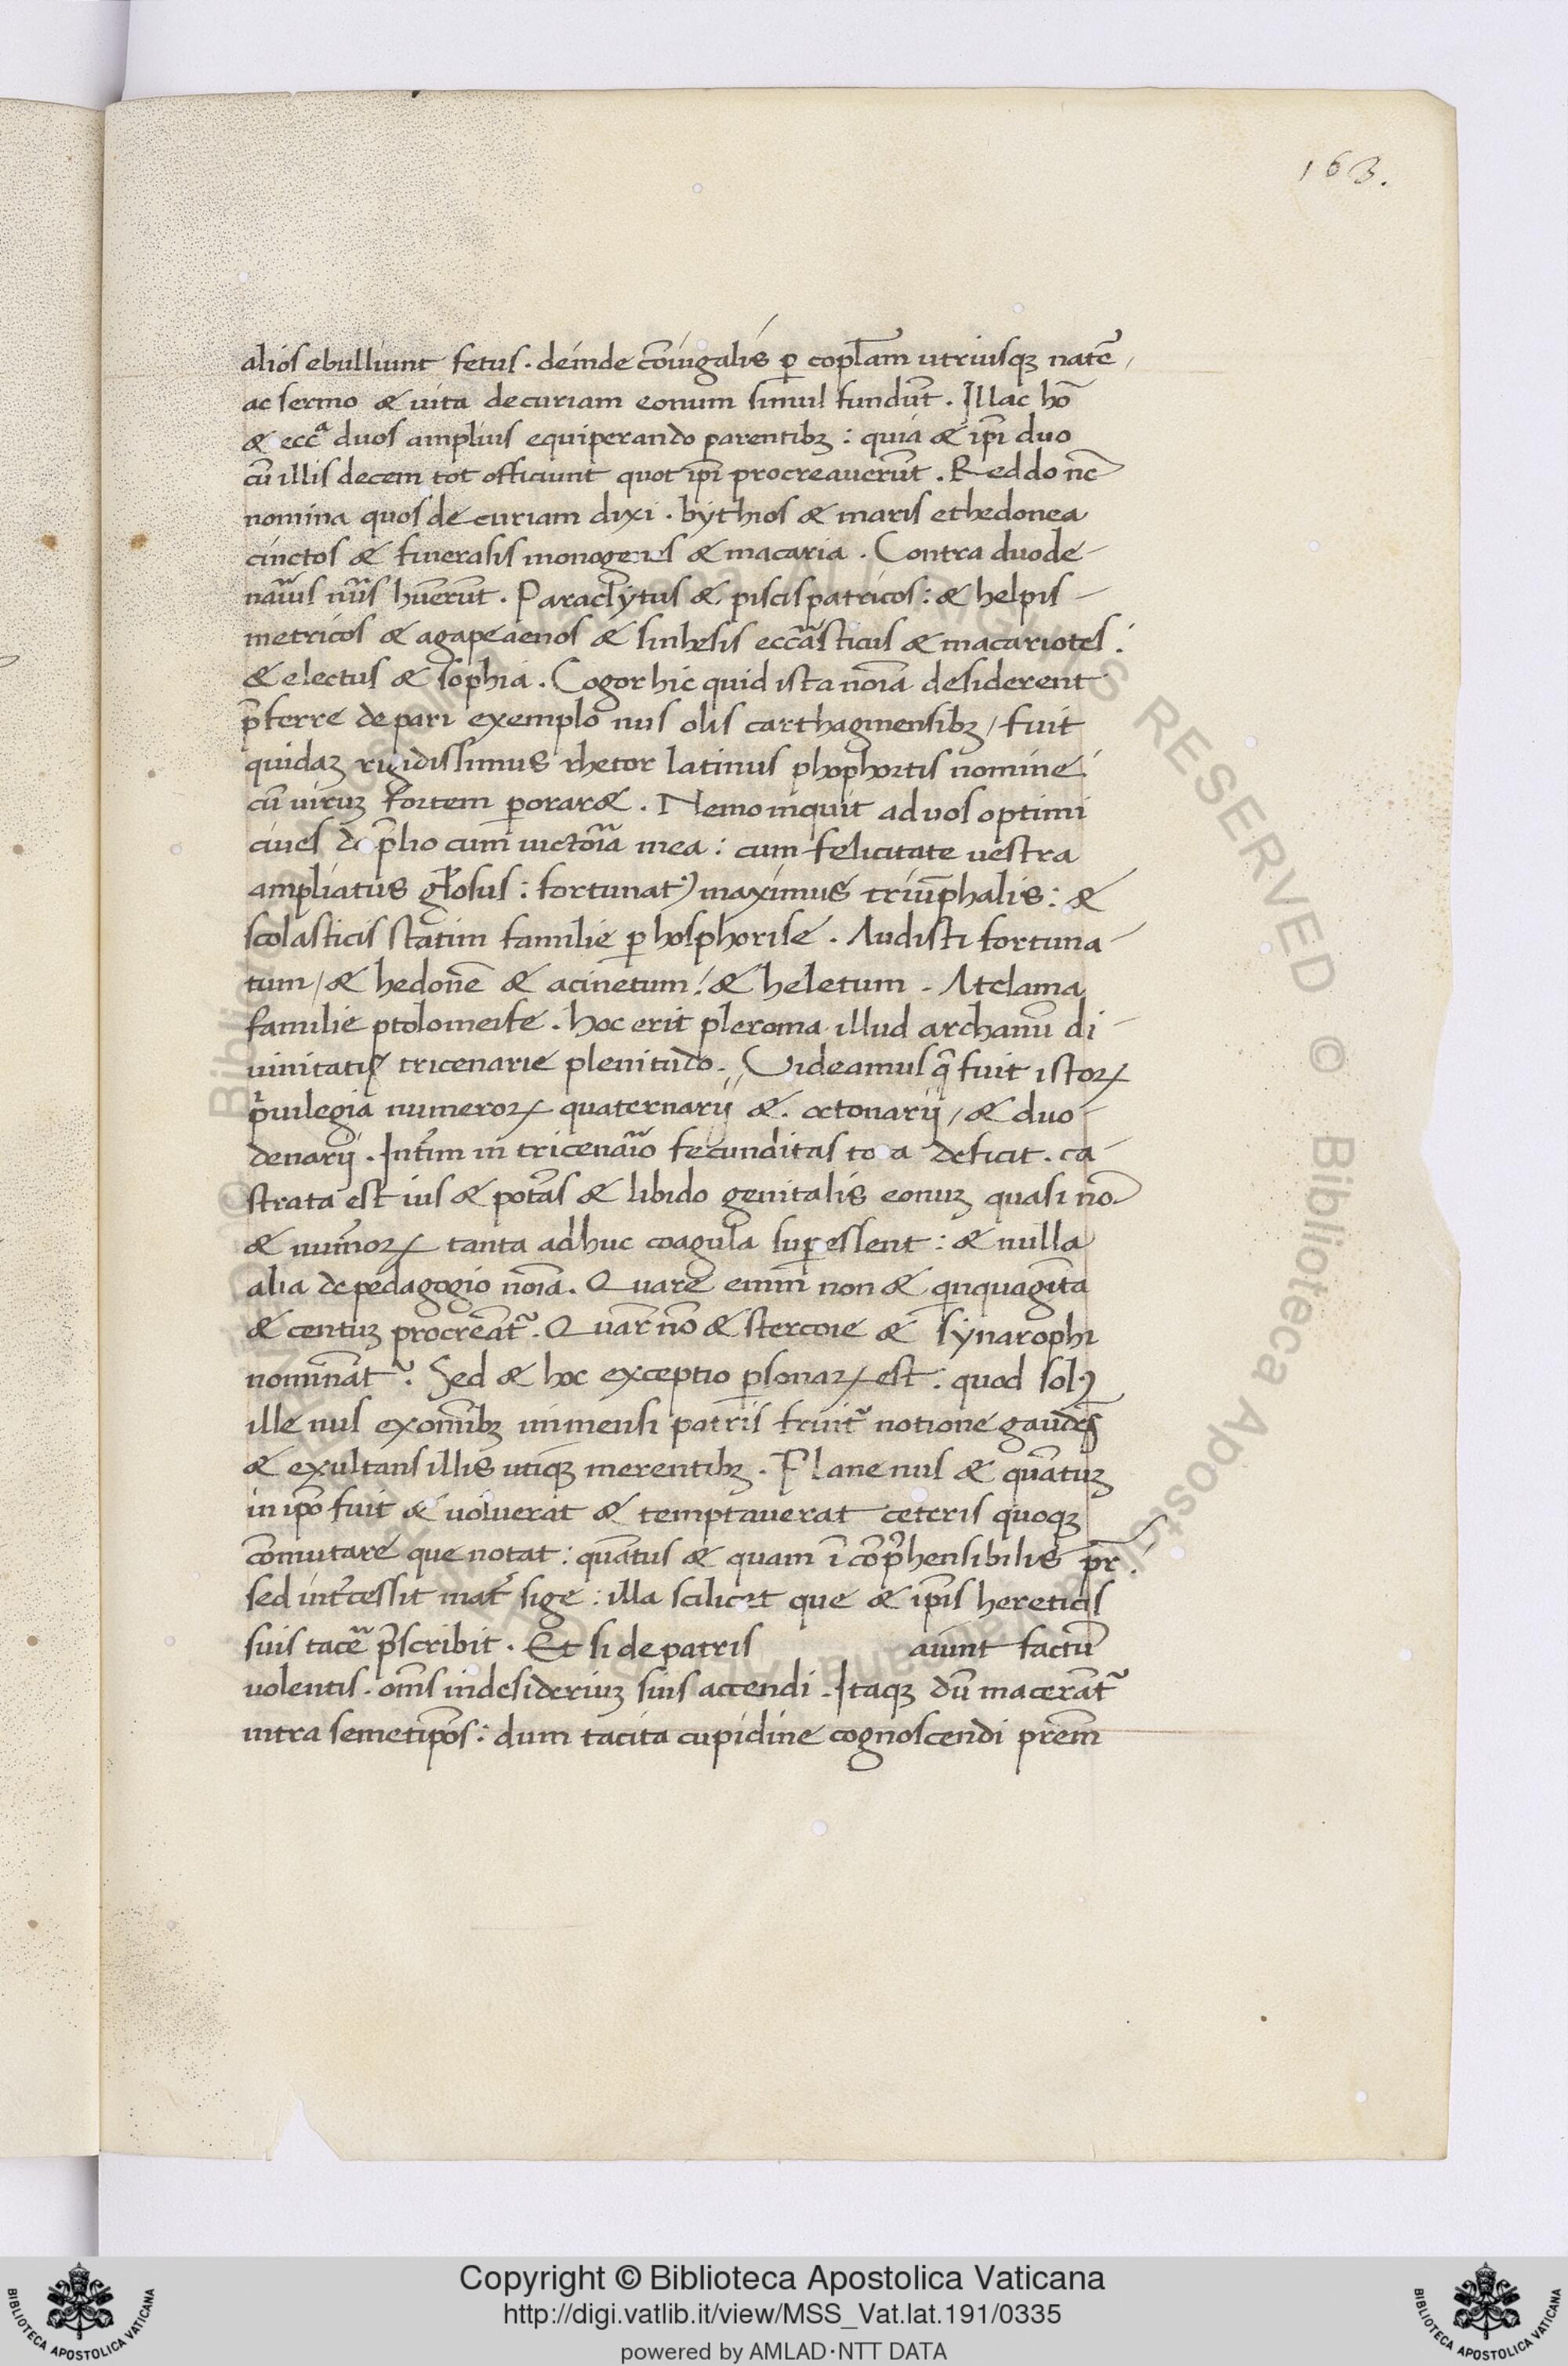 163.
alios ebulliunt fetus. deinde cōiugalis ꝑ copl̄am vtriusqꝫ natē,
ac sermo & uita decuriam eonum simul fundūt. Illac hō
& eccᵃ duos amplius equiperando parentibꝫ: quia & ip̄i duo
cū illis decem tot officiunt quot ip̄i procreauerūt. Reddo nc̄
nomina quos decuriam dixi. bythios & maris ethedonea
cinctos & fiueralis monogenes & macaria. Contra duode-
nāius nūs hūerūt. Paraclytus & piscispatricos: & helpis-
metricos & agapeaenos & sinhesis eccāsticus & macariotes:
& electus & sophia. Cogor hic quid ista noīa desiderent
p̄ferre de pari exemplo nus olis carthaginensibꝫ/ fuit
quidaꝫ rigidissimus rhetor latinus phophortis nomine:
cū uiruꝫ fortem ꝑorar&. Nemo inquit ad uos optimi
ciues de p̄lio cum uictoīa mea: cum felicitate uestra
ampliatus gl̄osus: fortunatꝰ maximus triūphalis: &
scolasticis statim familie ꝑ hosphorise. Audisti fortuna-
tum/ & hedonē & acinetum: & heletum. Atclama
familie ptolomeife. hoc erit pleroma illud archanū di-
uinitatis tricenarie plenitudo. Uideamus q̄ fuit istoꝝ
p̄uilegia numeroꝝ quaternarij & octonarij, & duo-
denarij. Int̄im in tricenaīo fecunditas to a deficit. ca-
strata est ius & potās & libido genitalis eonuꝫ quasi nō
& num̄oꝝ tanta adhuc coagula suꝑessent: & nulla
alia de pedagogio noīa. Quare enim non & qinquagīta
& centuꝫ procreāt᷑. Quar nō & stercoie & synarophi
nomināt᷑. Sed & hoc exceptio ꝑsonaꝝ est: quod solꝰ
ille nus ex omībꝫ immensi patris fruit᷑ notione gaudēs
& exultans illis utiqꝫ merentibꝫ. Plane nus & quātuꝫ
in ip̄o fuit & uoluerat & temptauerat ceteris quoqꝫ
cōmutare que notat: quātus & quam ī cōp̄hensibilis pr̄:
sed int̄cessit mat̄ sige: illa scilicet que & ip̄is hereticis
suis tacē p̄scribit. Et si de patris aiunt factū
uolentis. om̄s in desideriuꝫ suis accendi. Itaqꝫ dū macerāt᷑
intra semetip̄os: dum tacita cupidine cognoscendi prēm
Copyright © Biblioteca Apostolica Vaticana
http://digi.vatlib.it/view/MSS_Vat.lat.191/0335
powered by AMLAD·NTT DATA